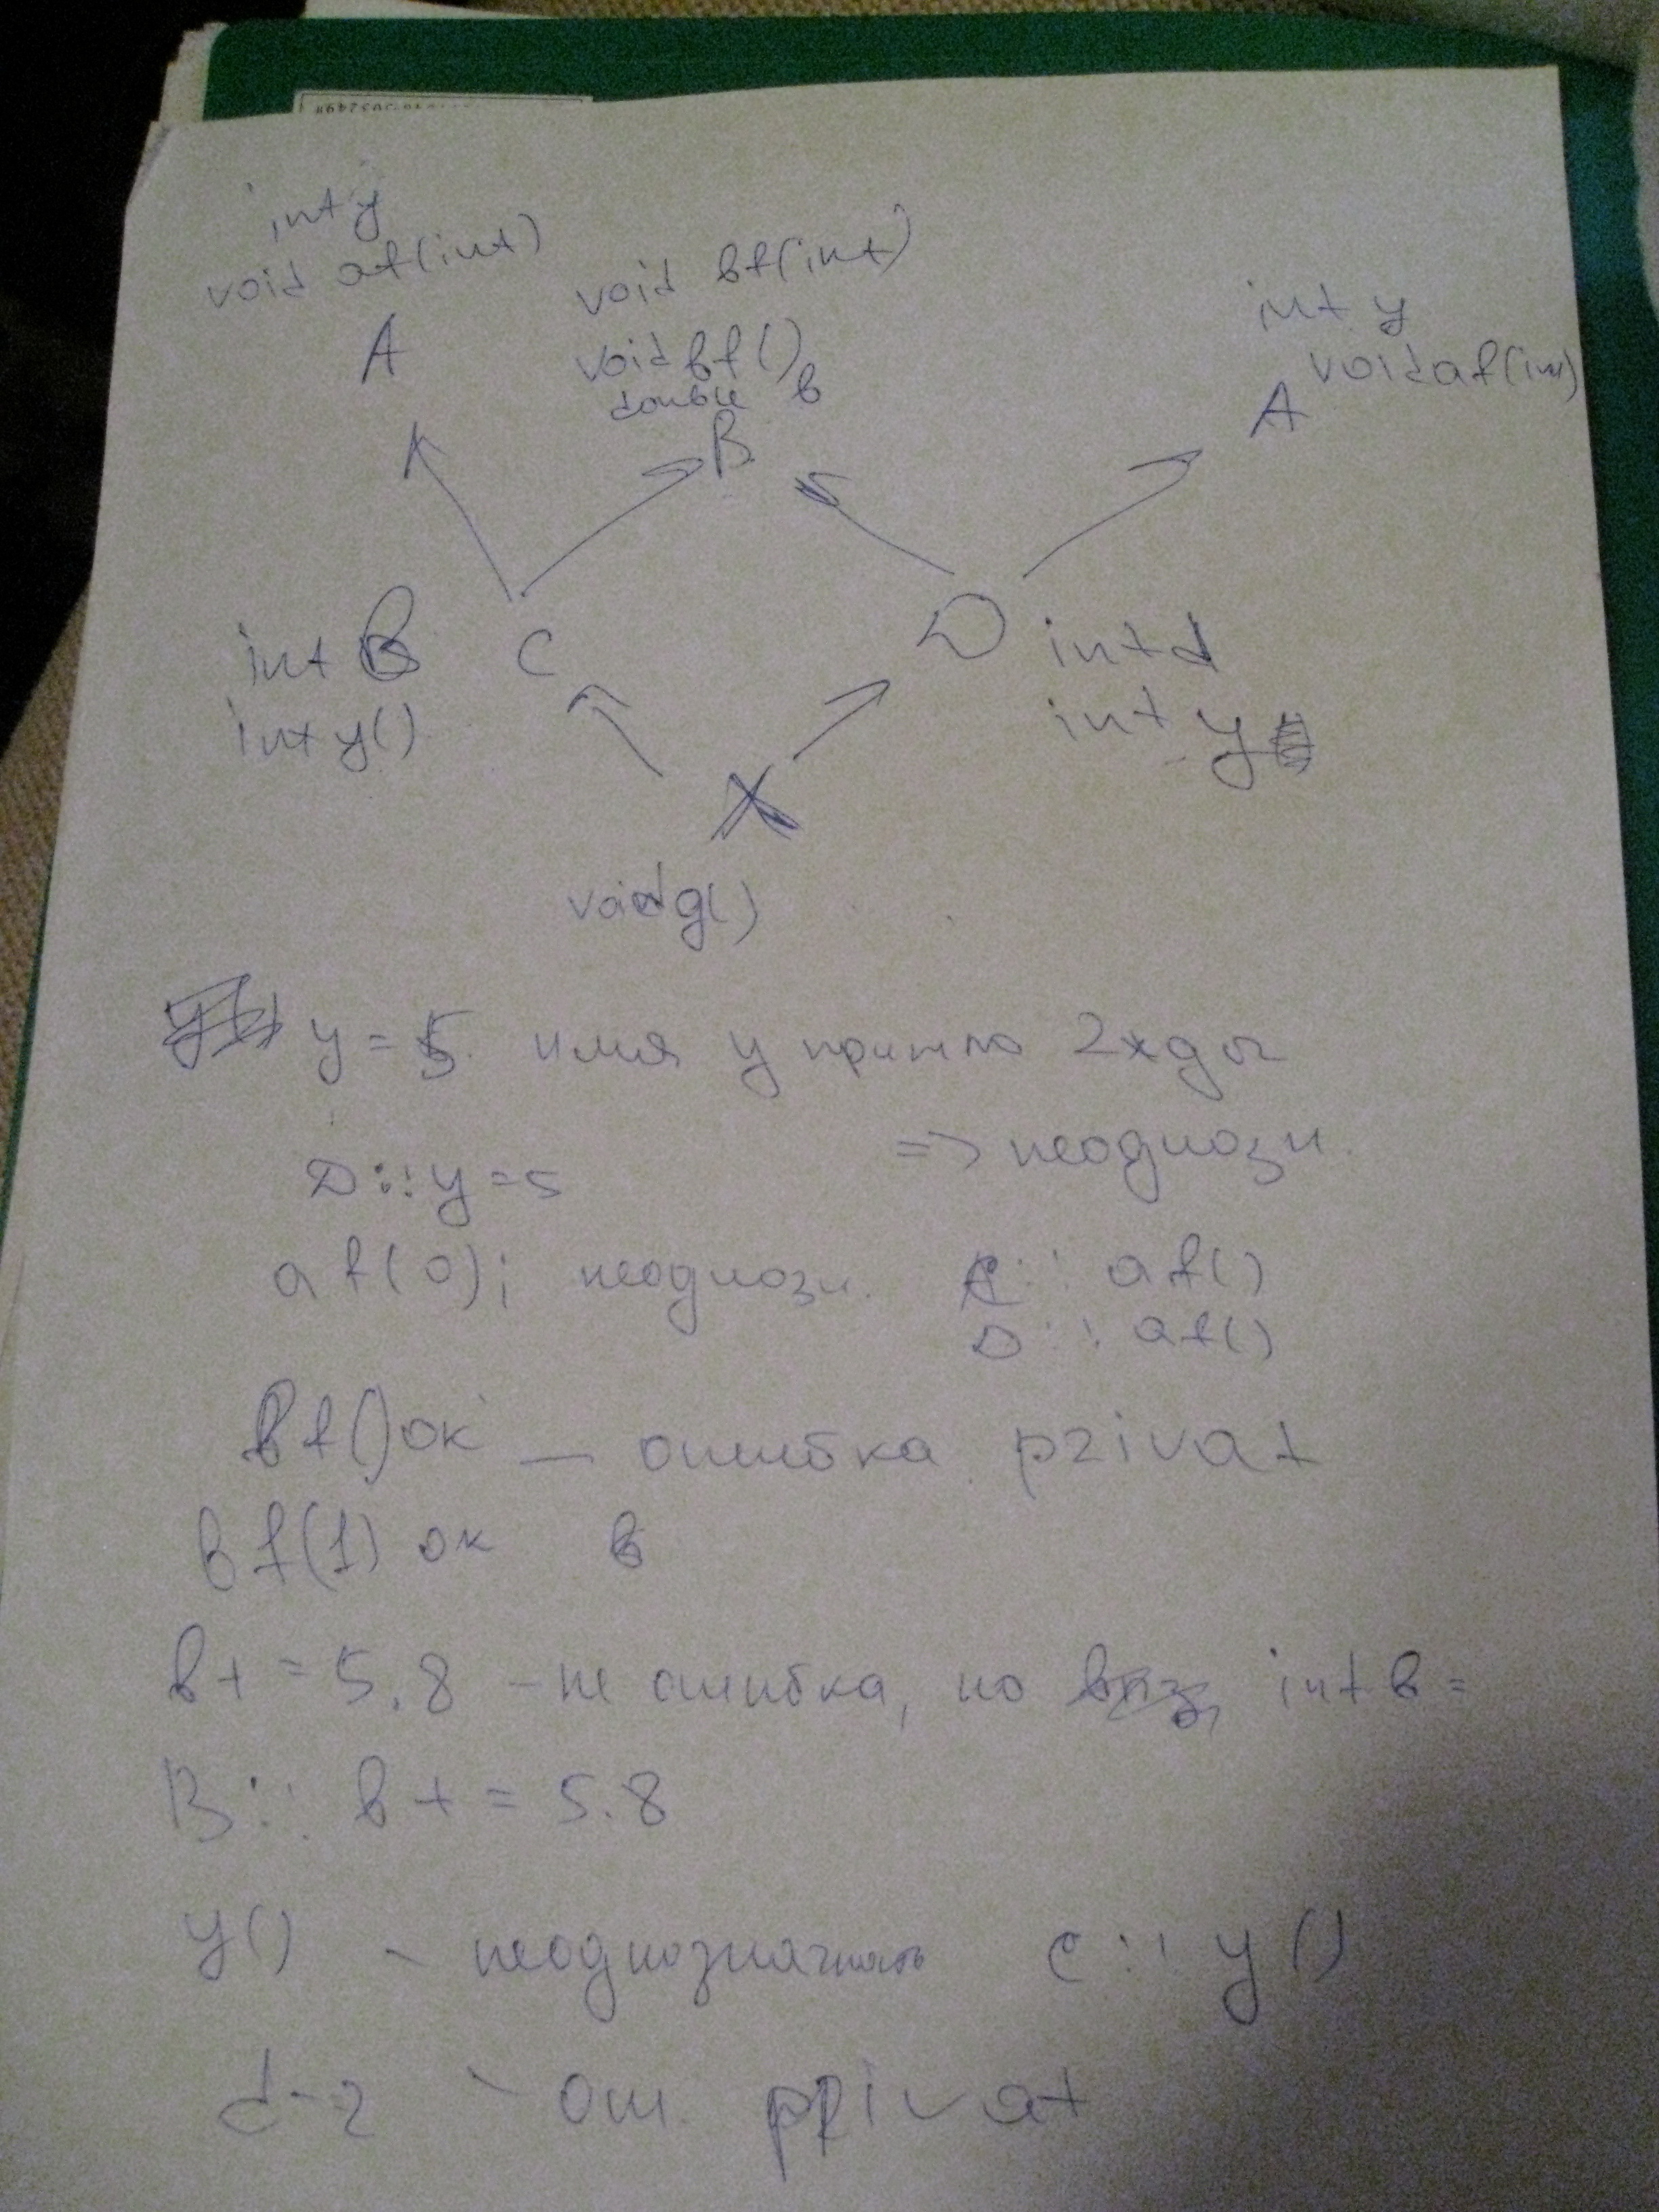 int y
void af(int)
A
void bf(int)
void bf()
double b
B
int y
void af(int)
A
int B C
int y()
D int d
int y
X
void g()
y = 5 имя y 2хды
=> неоднозн.
D::y = 5
af(0); неоднозн. C::af()
D::af()
bf() ок — ошибка privat
bf(1) ок в
b += 5.8 – не ошибка, но int b =
B::b += 5.8
y() - неоднозначность C::y()
ош. privat